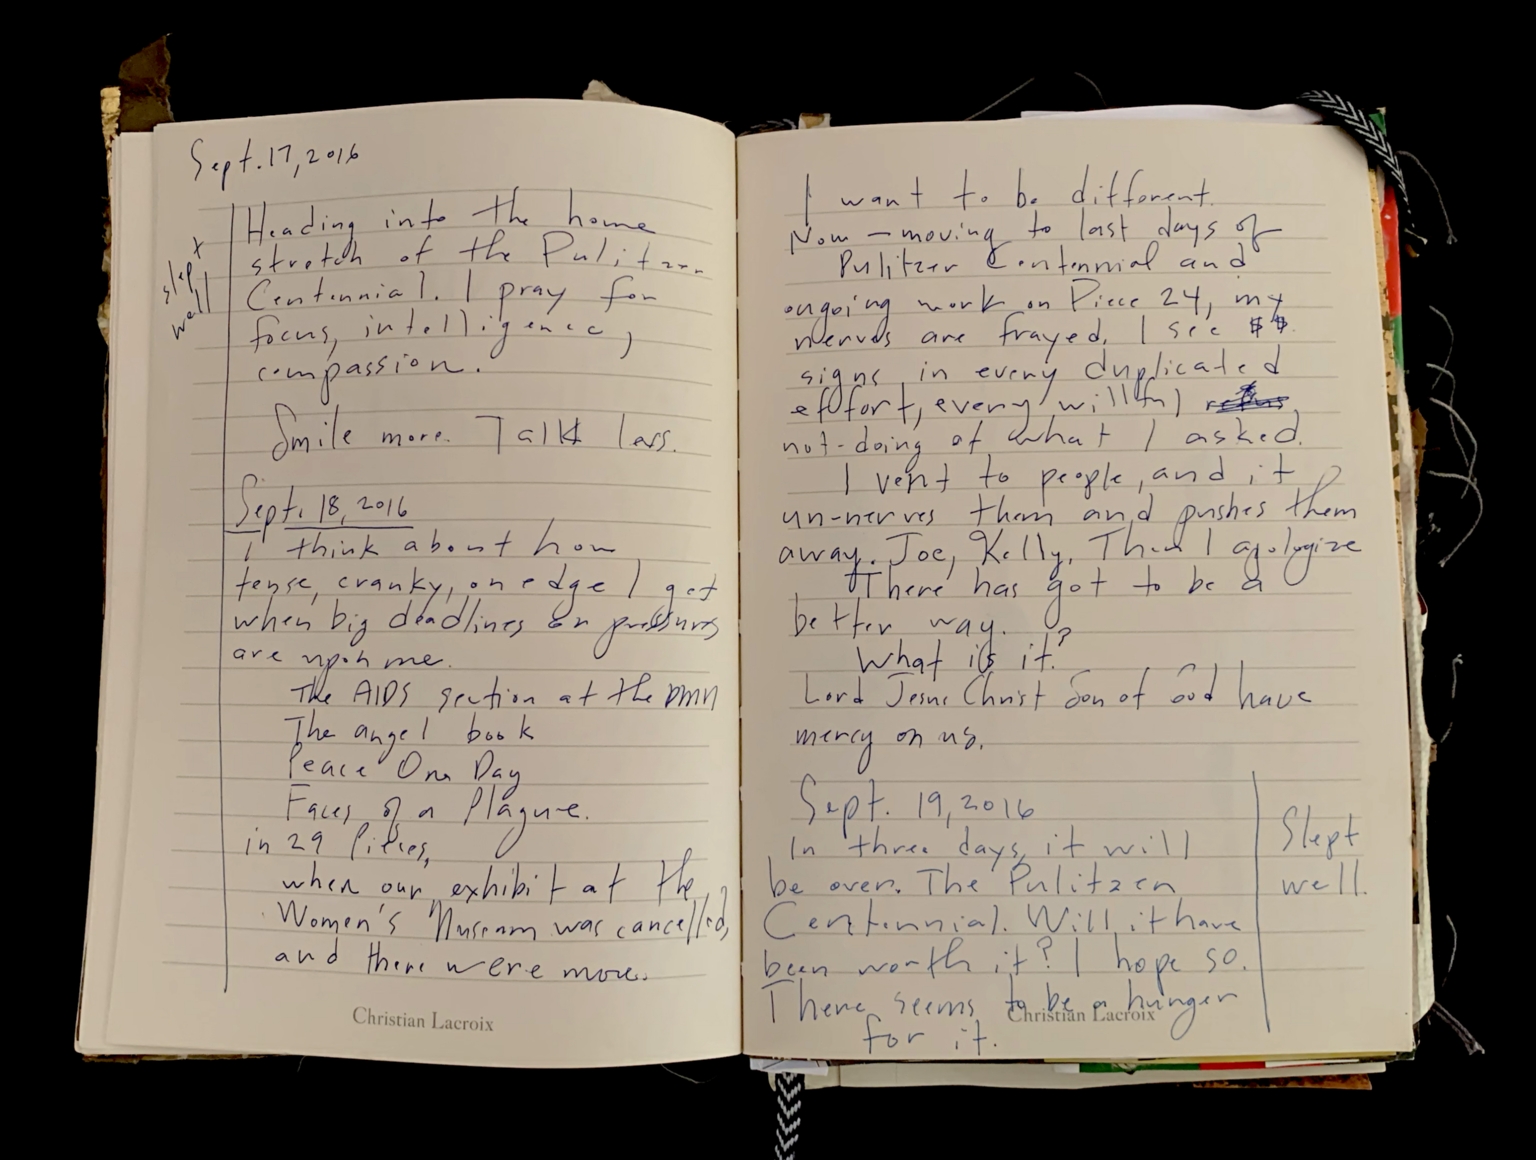 Sept. 17, 2016
slept
well
Heading into the home
stretch of the Pulitzer
Centennial. I pray for
focus, intelligence,
compassion.
Smile more. Talk less.
Sept. 18, 2016
I think about how
tense, cranky, on edge I get
when big deadlines or pressures
are upon me.
The AIDS section at the DMN
The angel book
Peace One Day
Faces of a Plague.
in 29 Cities,
when our exhibit at the
Women's Museum was cancelled,
and there were more.
Christian Lacroix
I want to be different.
Now – moving to last days of
Pulitzer Centennial and
ongoing work on Piece 24, my
nerves are frayed. I see $$
signs in every duplicated
effort, every willful
not-doing of what I asked.
I vent to people, and it
un-nerves them and pushes them
away. Joe, Kelly. Then I apologize
There has got to be a
better way.
What is it?
Lord Jesus Christ Son of God have
mercy on us.
Sept. 19, 2016
In three days, it will
be over. The Pulitzer
Centennial. Will it have
been worth it? I hope so.
There seems to be a hunger
for it.
Slept
well.
Christian Lacroix